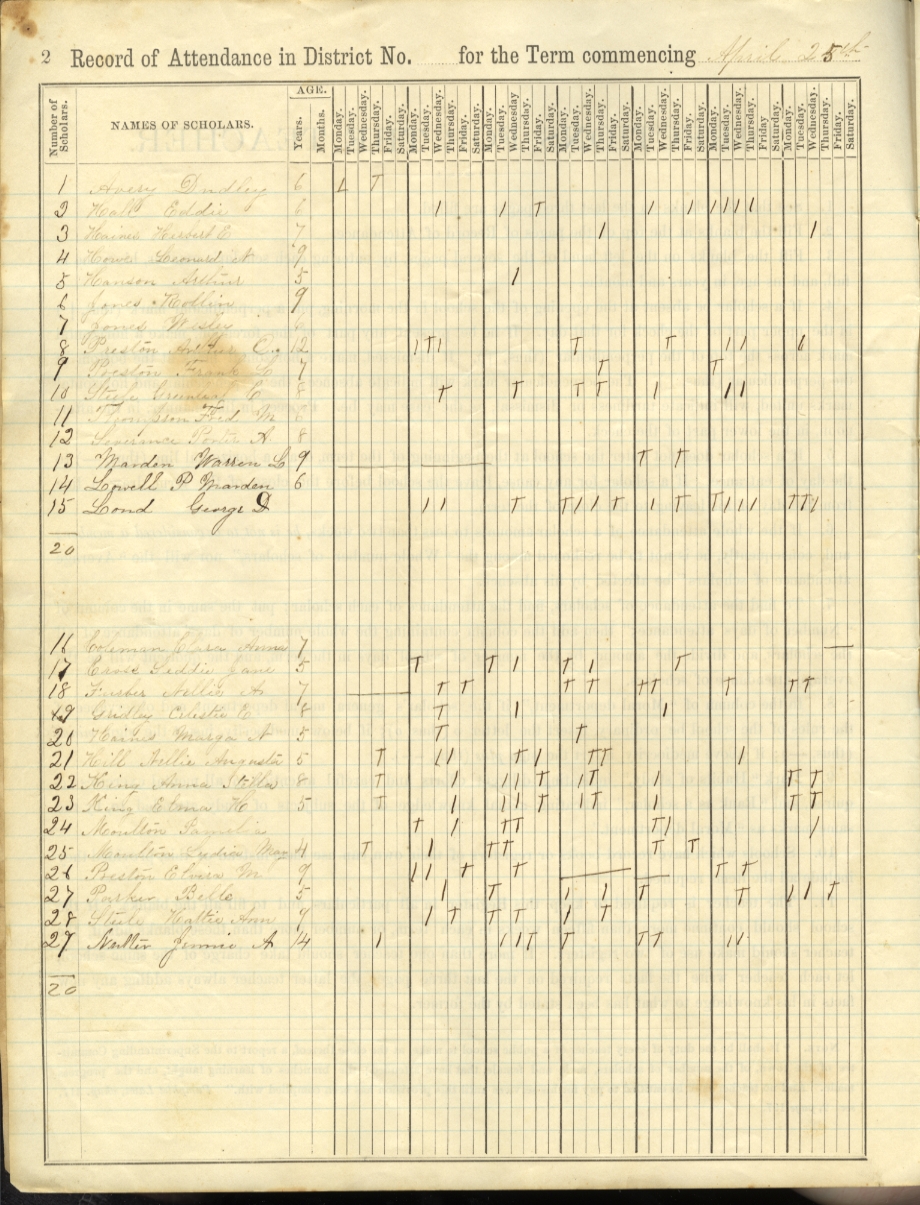 2 Record of Attendance in District No. for the Term commencing April 25th
Number of Scholars. NAMES OF SCHOLARS. AGE. Years. Months. Monday. Tuesday. Wednesday. Thursday. Friday. Saturday. Monday. Tuesday. Wednesday. Thursday. Friday. Saturday. Monday. Tuesday. Wednesday Thursday. Friday. Saturday. Monday. Tuesday. Wednesday. Thursday. Friday. Saturday. Monday. Tuesday. Wednesday. Thursday. Friday. Saturday. Monday. Tuesday. Wednesday. Thursday. Friday Saturday. Monday. Tuesday. Wednesday. Thursday. Friday. Saturday.
1 Avery Dudley 6 L T
2 Hall Eddie 6 / / T / / / / / /
3 Haines Herbert E 7 / /
4 Howe Leonard N 9
5 Hanson Arthur 5 /
6 Jones Rollin 9
7 Jones Wesley
8 Preston Arthur C. 12 / T / T T / /
9 Preston Frank 7 T T
10 Steele Greenleaf C 8 T T T T / / /
11 Thompson Fred M 8
12 Severance Porter A 8
13 Marden Warren L 9 T T
14 Lowell P Marden 6
15 Lond George D / / T T / / T / T T / / / T T /
20
16 Coleman Clara Anna 7
17 Geddie Jane 5 T T / T / T
18 Furber Nellie A 7 T T T T T T T T T
19 Gridley Celestie E 8 T / /
20 Haines N 5 T T
21 Hill Nellie Augusta 5 T / / T / T T /
22 King Anna Stella 8 T / / / T / T / T T
23 King Elma H 5 T / / / T / T / T T
24 Moulton T / T T T / /
25 Moulton Lydia May 4 T / T T T T
26 Preston Elvira M 9 / / T T T T
27 Parker Belle 5 / T / / T T / / T
28 Steele Hattie Ann 7 / T T T / T
27 Nutter Jennie A 14 / / / T T T T / /
20